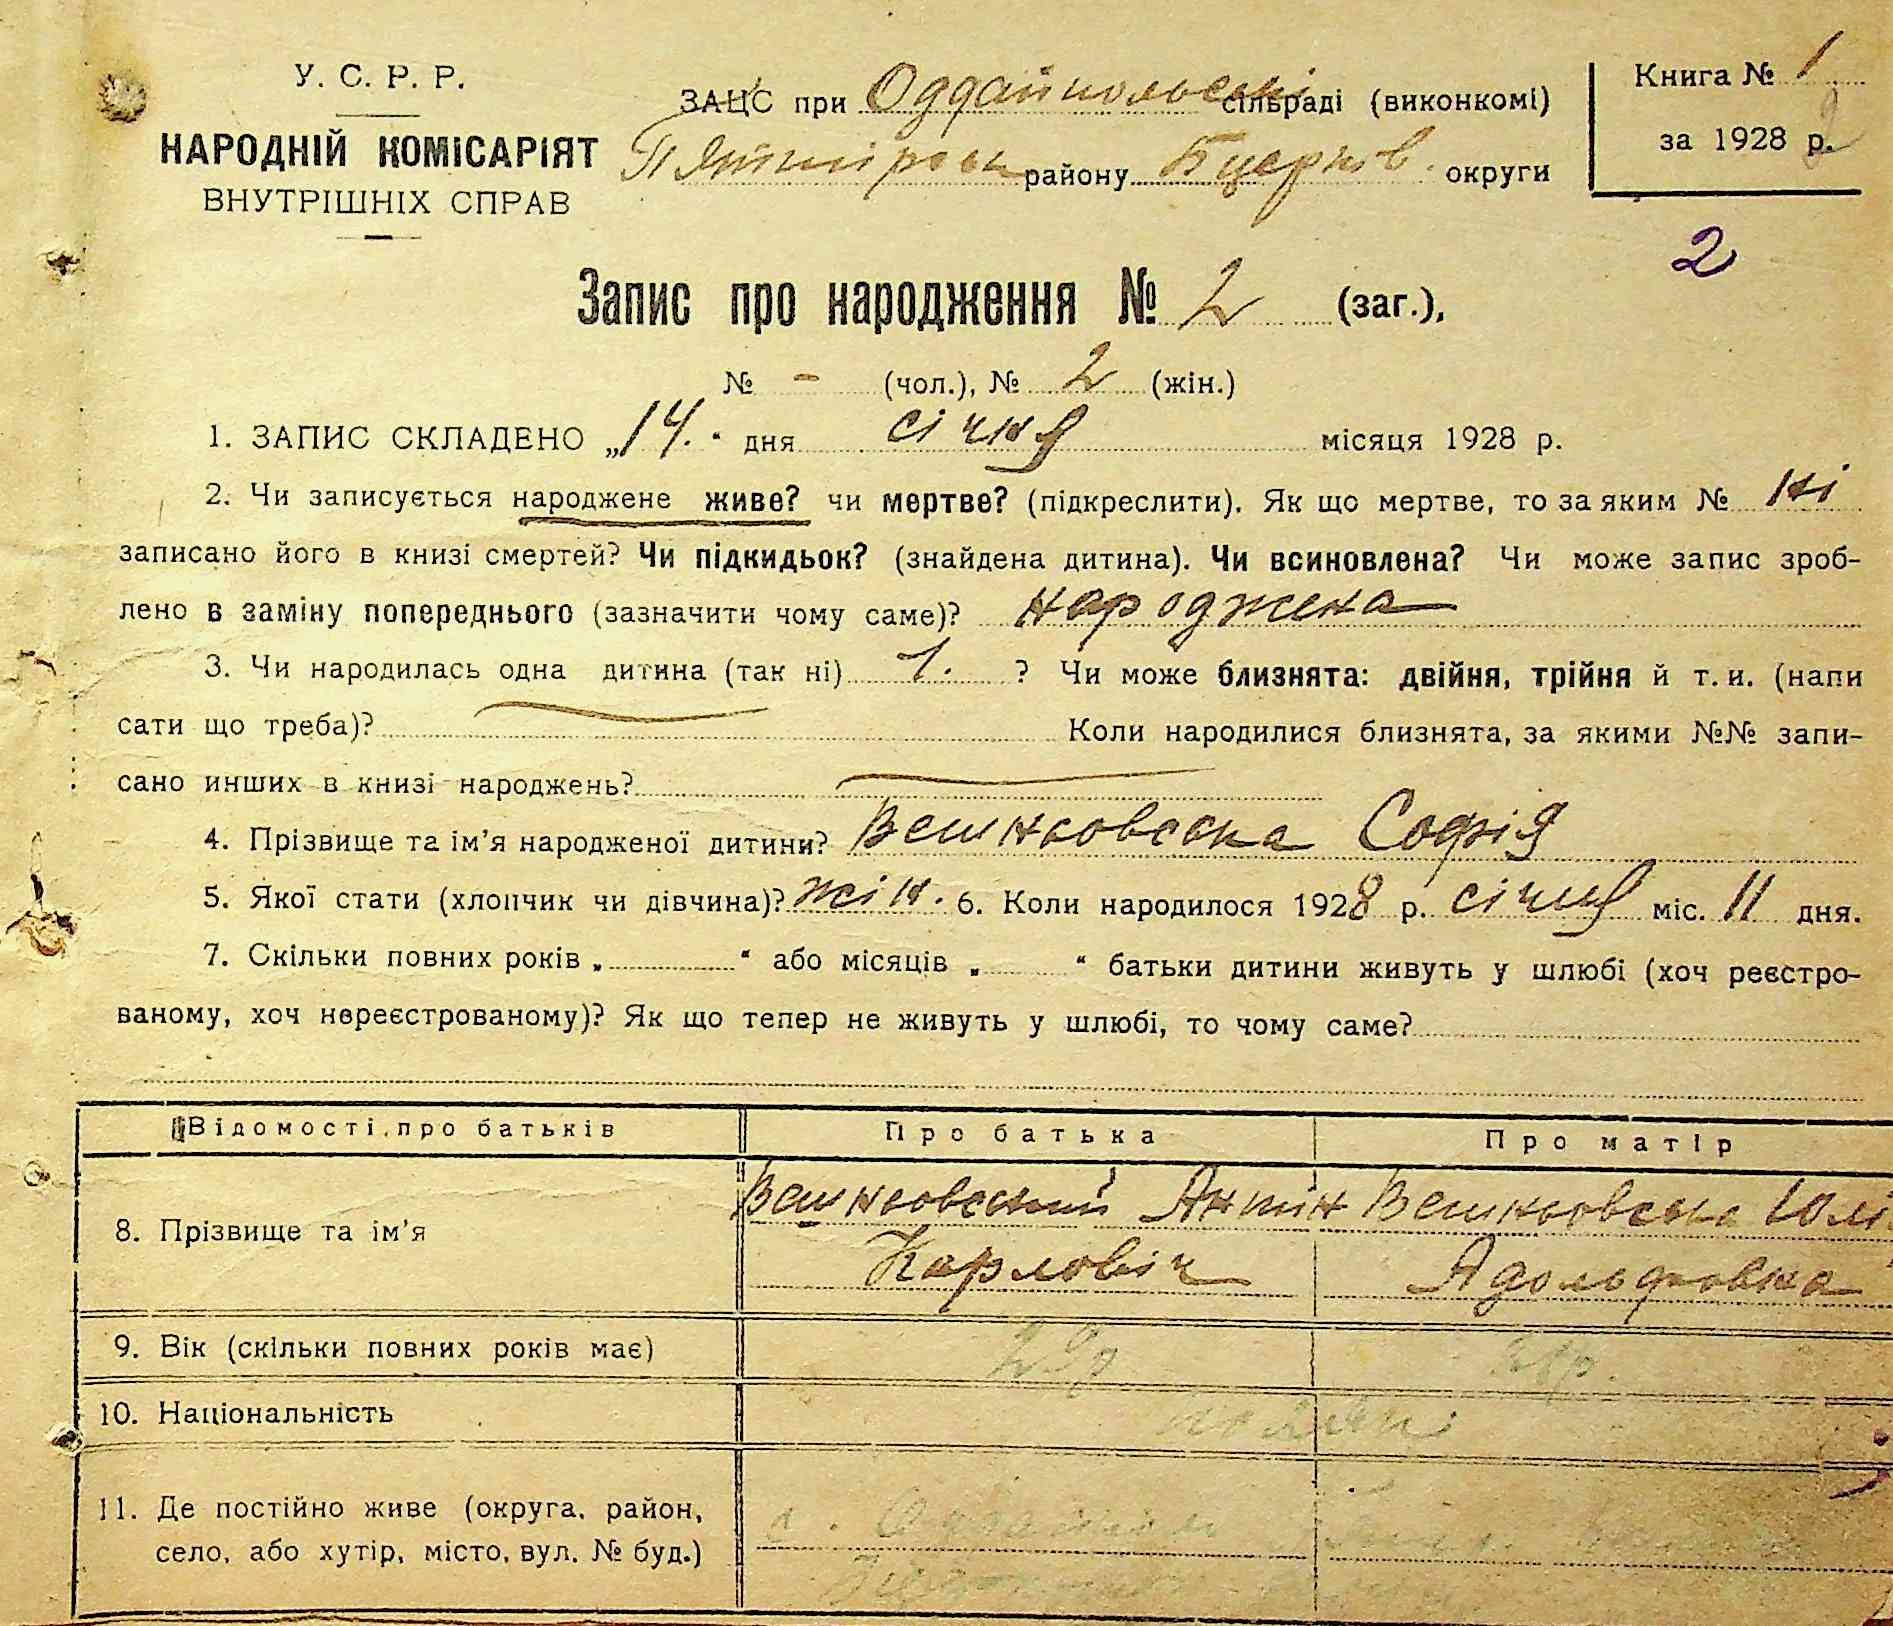 У. С. Р. Р.
НАРОДНІЙ КОМІСАРІЯТ
ВНУТРІШНІХ СПРАВ
ЗАЦС при Оддайпольскі сільраді (виконкомі)
району Бцерков. округи
Книга № 1
за 1928 р.
2
Запис про народження № 2 (заг.),
№ - (чол.), № 2 (жін.)
1. ЗАПИС СКЛАДЕНО „14.“ дня січня місяця 1928 р.
2. Чи записується народжене живе? чи мертве? (підкреслити). Як що мертве, то за яким № ні
записано його в книзі смертей? Чи підкидьок? (знайдена дитина). Чи всиновлена? Чи може запис зроб-
лено в заміну попереднього (зазначити чому саме)? народжена
3. Чи народилась одна дитина (так ні) 1. ? Чи може близнята: двійня, трійня й т. и. (напи
сати що треба)? Коли народилися близнята, за якими №№ запи-
сано инших в книзі народжень?
4. Прізвище та ім’я народженої дитини? Вешньовська Софія
5. Якої стати (хлопчик чи дівчина)? жін. 6. Коли народилося 1928 р. січня міс. 11 дня.
7. Скільки повних років „ “ або місяців „ “ батьки дитини живуть у шлюбі (хоч реєстро-
ваному, хоч нереєстрованому)? Як що тепер не живуть у шлюбі, то чому саме?
Відомості про батьків Про батька Про матір
8. Прізвище та ім’я Вешньовський Антін Карловіч Вешньовська Юлі Адольфовна
9. Вік (скільки повних років має) 29р
10. Національність поляки
11. Де постійно живе (округа, район,
село, або хутір, місто, вул. № буд.)